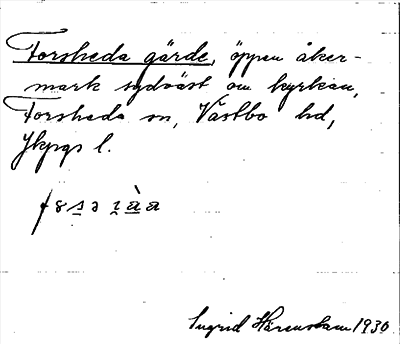 Forsheda gärde, öppen åker-
mark sydväst om kyrkan,
Forsheda sn, Västbo hd,
Jkpgs l.
Ingrid Härenstam 1930